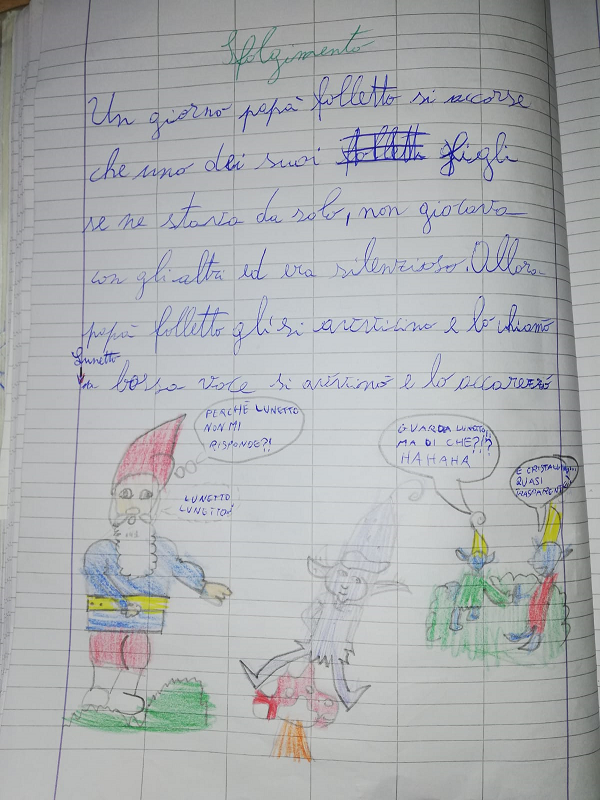 Svolgimento
Un giorno papà folletto si accorse
che uno dei suoi folletti figli
se ne stava da solo, non giocava
con gli altri ed era silenzioso. Allora
papà folletto gli si avvicinò e lo chiamò
Lunetto
a bassa voce si avvicinò e lo accarezzò
PERCHÉ LUNETTO
NON MI
RISPONDE?!
LUNETTO
LUNETTO!
GUARDA LUNETTO,
MA DI CHE?!?
HAHAHA
E CRISTALLINO
QUASI
TRASPARENTE